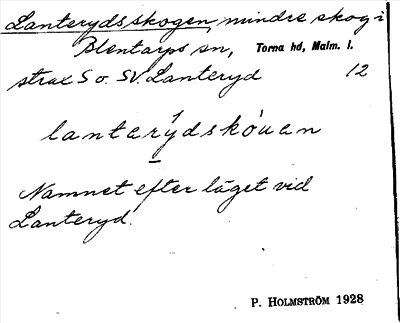 Lanterydsskogen, mindre skog i
Blentarps sn, Torna hd, Malm. l.
strax S o. SV. Lanteryd 12
lantarýdskòuan
Namnet efter läget vid
Lanteryd.
P. HOLMSTRÖM 1928